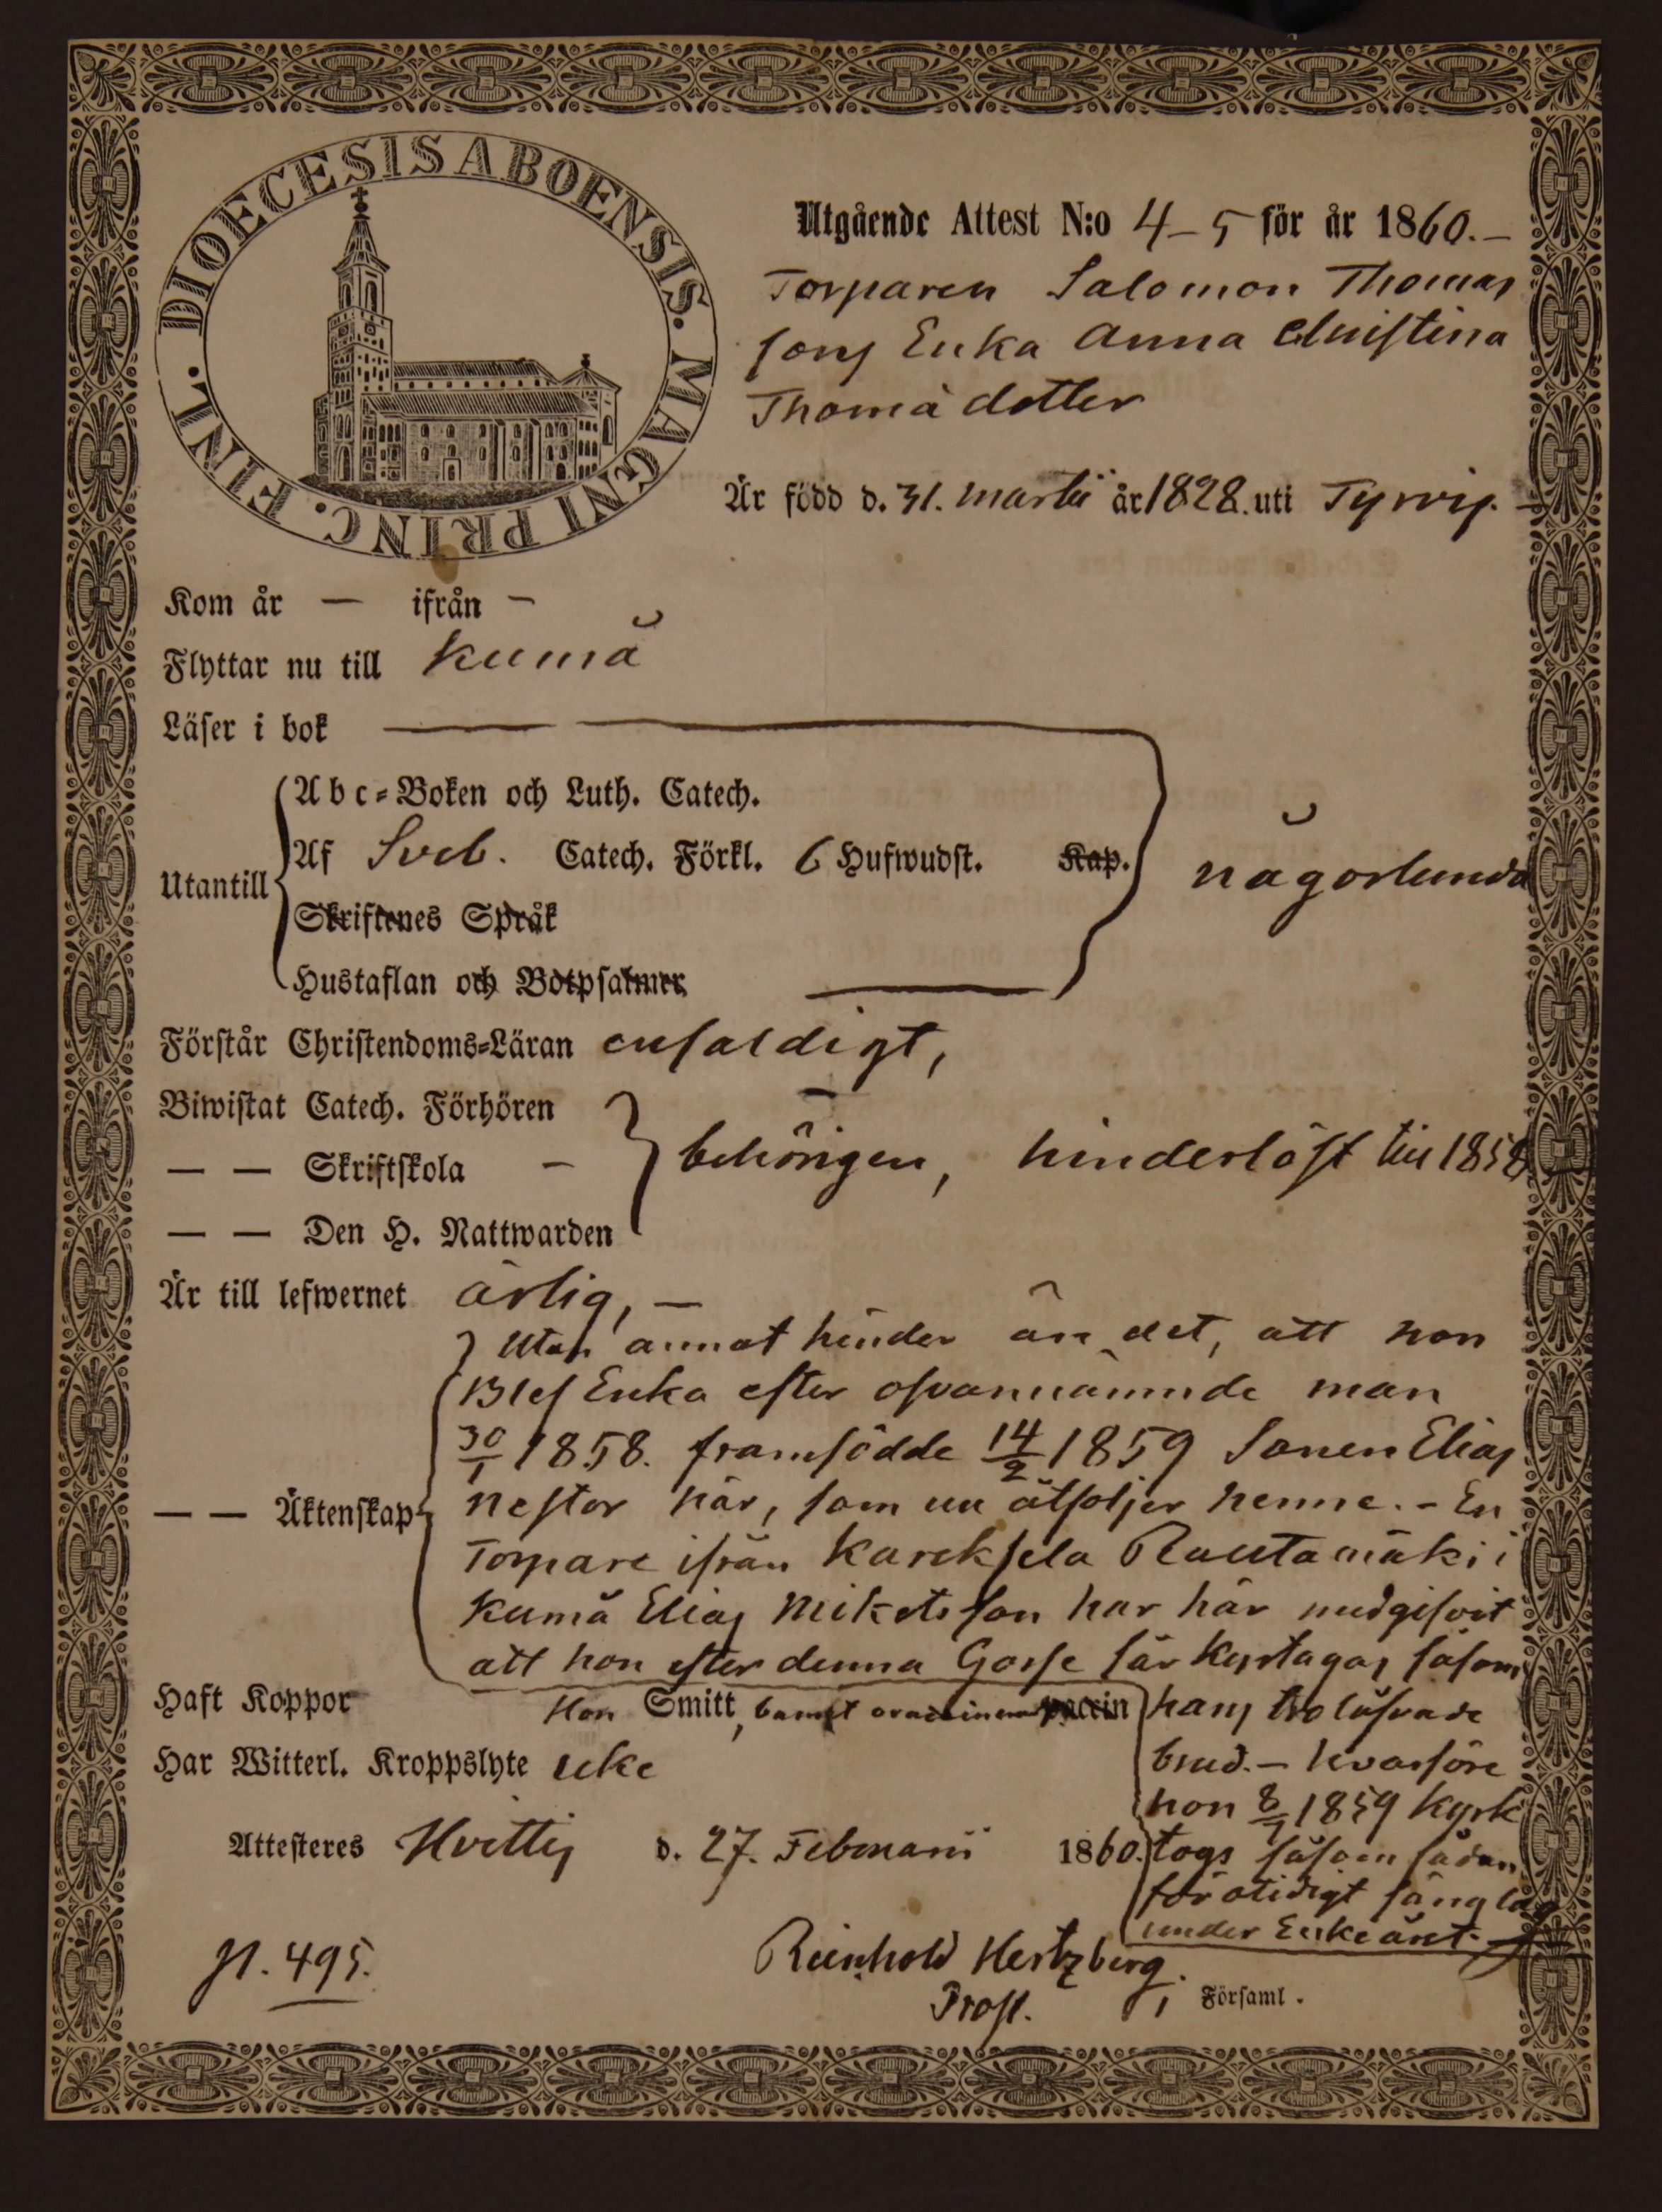 DIOECESIS ABOENSIS. MAGNI PRINC. FINL.
Utgående Attest N:o 4-5 för år 1860.-
Torparen Salomon Thomas
sons Enka Anna Christina
Thomädotter
Är född d. 31. Martii år 1828. uti Tyrvis. -
Kom år - ifrån -
Flyttar nu till Kumå
Läser i bok
Utantill
Abc-Boken och Luth. Catech.
Af Sveb. Catech. Förkl. 6 Hufwudst. Kap.
Skriftenes Språk
Hustaflan och Botpsalmer
någorlunda
Förstår Christendoms-Läran enfaldigt,
Biwistat Catech. Förhören -
— — Skriftskola -
— — Den H. Nattwarden
behörigen, hinderlöst till 1858
Är till lefwernet ärlig, -
— — Äktenskap
Utan annat hinder än det, att hon
Blef Enka efter ofvannämnde man
30/1 1858. framfödde 14/2 1859 Sonen Elias
Nestor här, som nu åtföljer henne. - En
Torpare ifrån Kareksela Rautamäki i
Kumå Elias Mikelsson har här medgifvit
att hon efter denna Gosse får kyrktagas såsom
hans trolofvade
brud. - hvarföre
hon 8/7 1859 kyrk
togs såsom sådan,
för otidigt sänglag
under Enkeåret.
Haft Koppor Hon Smitt, barnet ovaccinerad vaccin
Har Witterl. Kroppslyte icke
Attesteres Hvittis d. 27. Februarii 1860.
p. 495.
Reinhold Hertzberg.
Prost. i Församl.